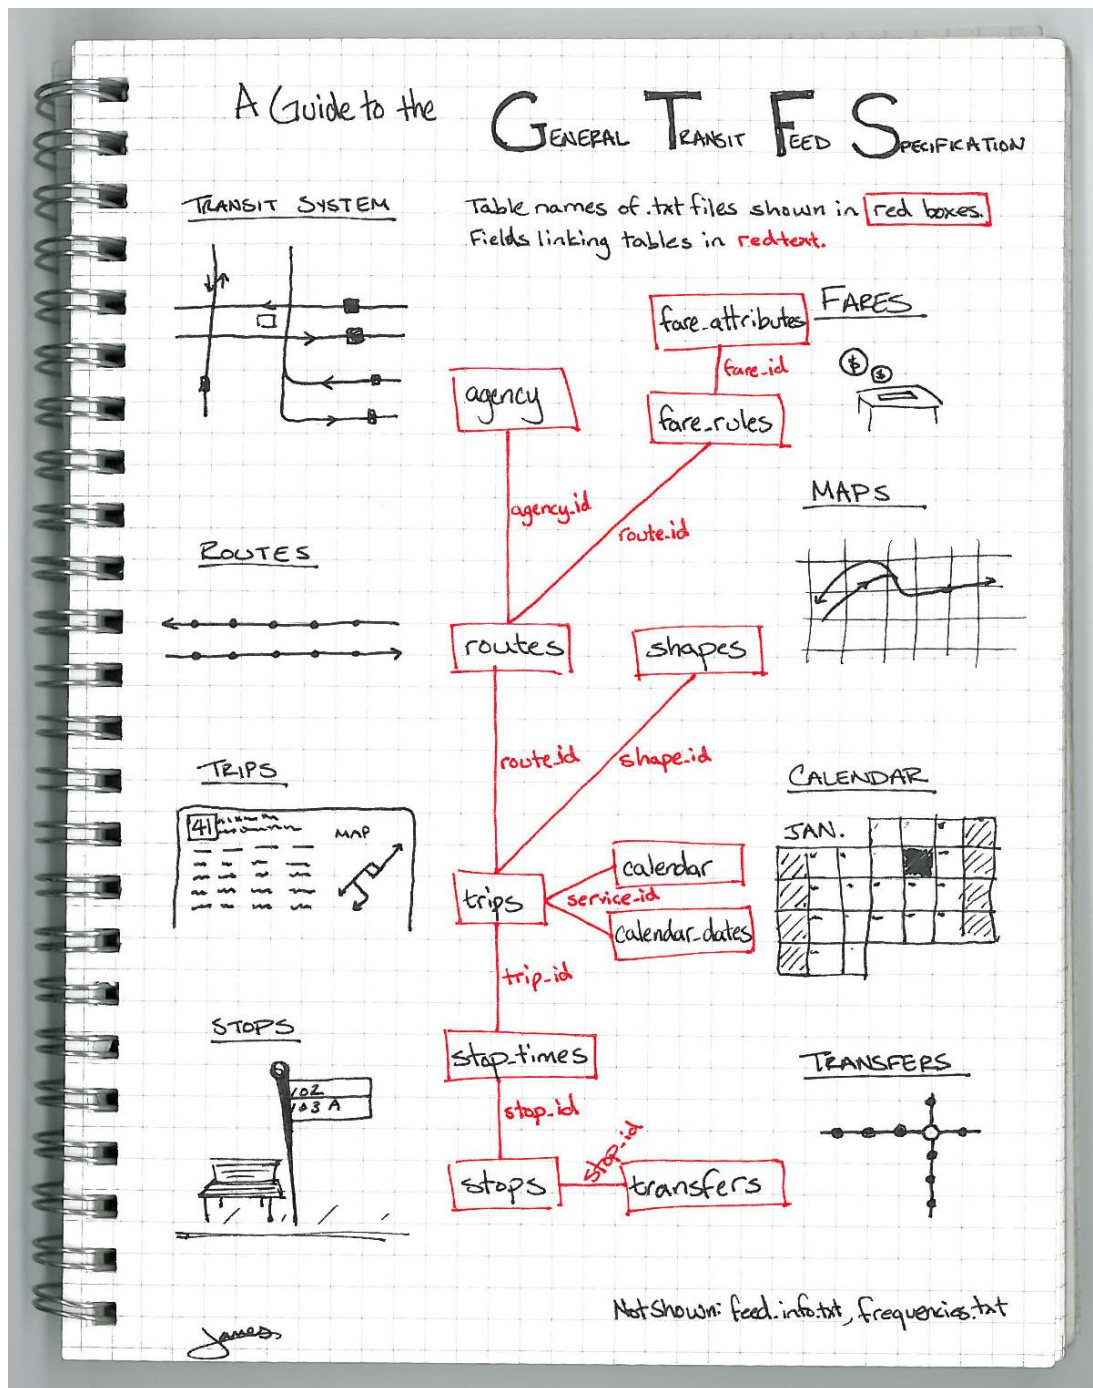 A Guide to the GENERAL TRANSIT FEED SPECIFICATION
TRANSIT SYSTEM
Table names of .txt files shown in red boxes.
Fields linking tables in red text.
fare_attributes
FARES
$
$
fare_id
agency
fare_rules
MAPS
agency_id
route_id
ROUTES
routes
shapes
route_id
shape_id
TRIPS
CALENDAR
41
MAP
JAN.
calendar
trips
service_id
calendar_dates
trip_id
STOPS
stop_times
TRANSFERS
102
103 A
stop_id
stop_id
stops
transfers
Not Shown: feed_info.txt, frequencies.txt
James